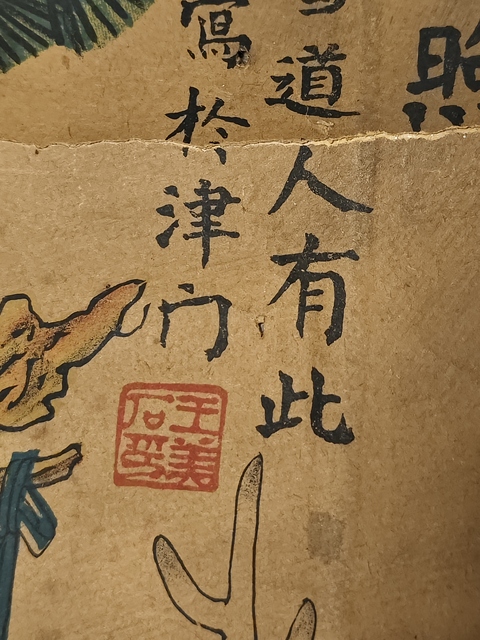 照
道人有此
寫於津门
王美
石印